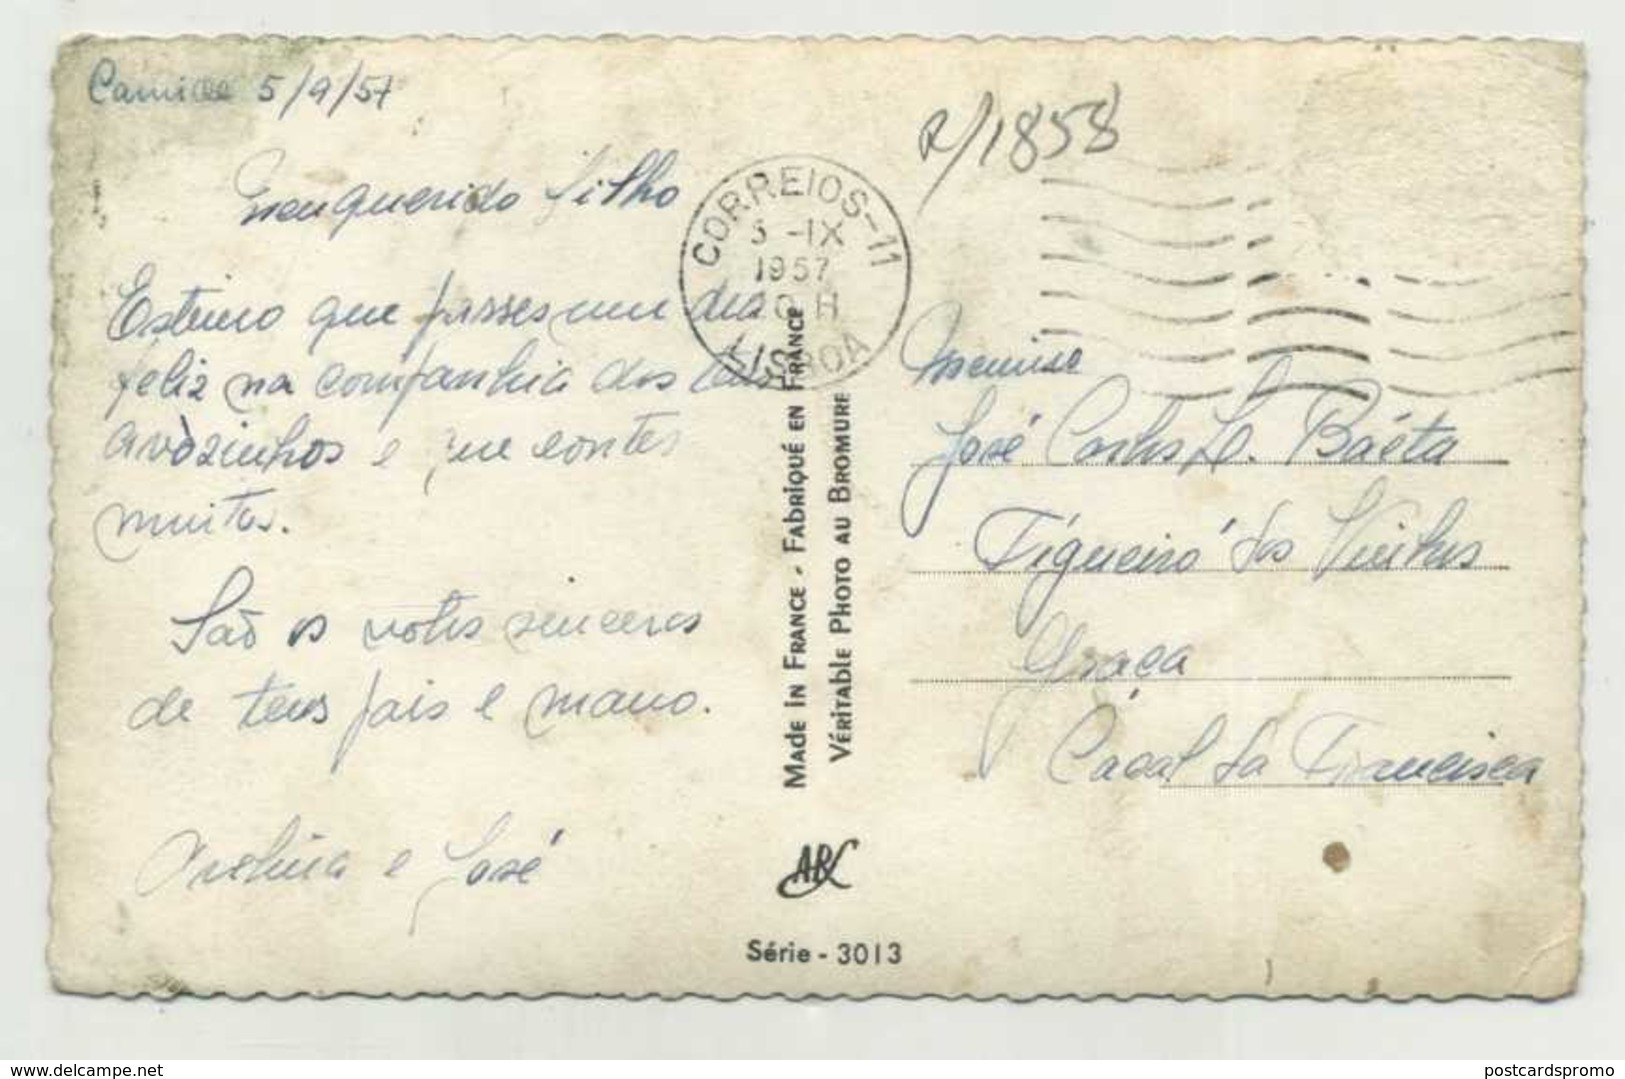 Carnide 5/9/57
Meu querido filho
Estimo que passes um dia
feliz na companhia dos teus
avòzinhos e que contes
muitos.
São os votos sinceros
de teus pais e mano.
e José
CORREIOS-11
5 -IX
1957
LISBOA
MADE IN FRANCE - FABRIQUÉ EN FRANCE
VÉRITABLE PHOTO AU BROMURE
ARC
Série - 3013
R/1858
Menino
José Carlos L. Baéta
Figueiró dos Vinhos
Graça
Casal da Francisca
www.delcampe.net
postcardspromo